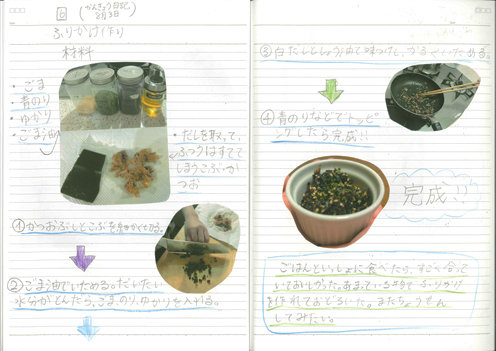 6
かんきょう日記
2月3日
ふりかけ作り
材料
・ごま
・青のり
・ゆかり
・ごま油
・だしを取って、
ふつうはすてて
しまうこぶ・か
つお
①かつおぶしとこぶを細かくきる。
②ごま油でいためる。だいたい
水分がとんだら、ごま、のり、ゆかりを入れる。
③白だしとしょうゆで味つけし、かるくいためる。
④青のりなどでトッピ
ングしたら完成!!
完成!!
ごはんといっしょに食べたら、すごく合って
いておいしかった。あまっているもので ふりかけ
を作れておどろいた。またちょうせん
してみたい。